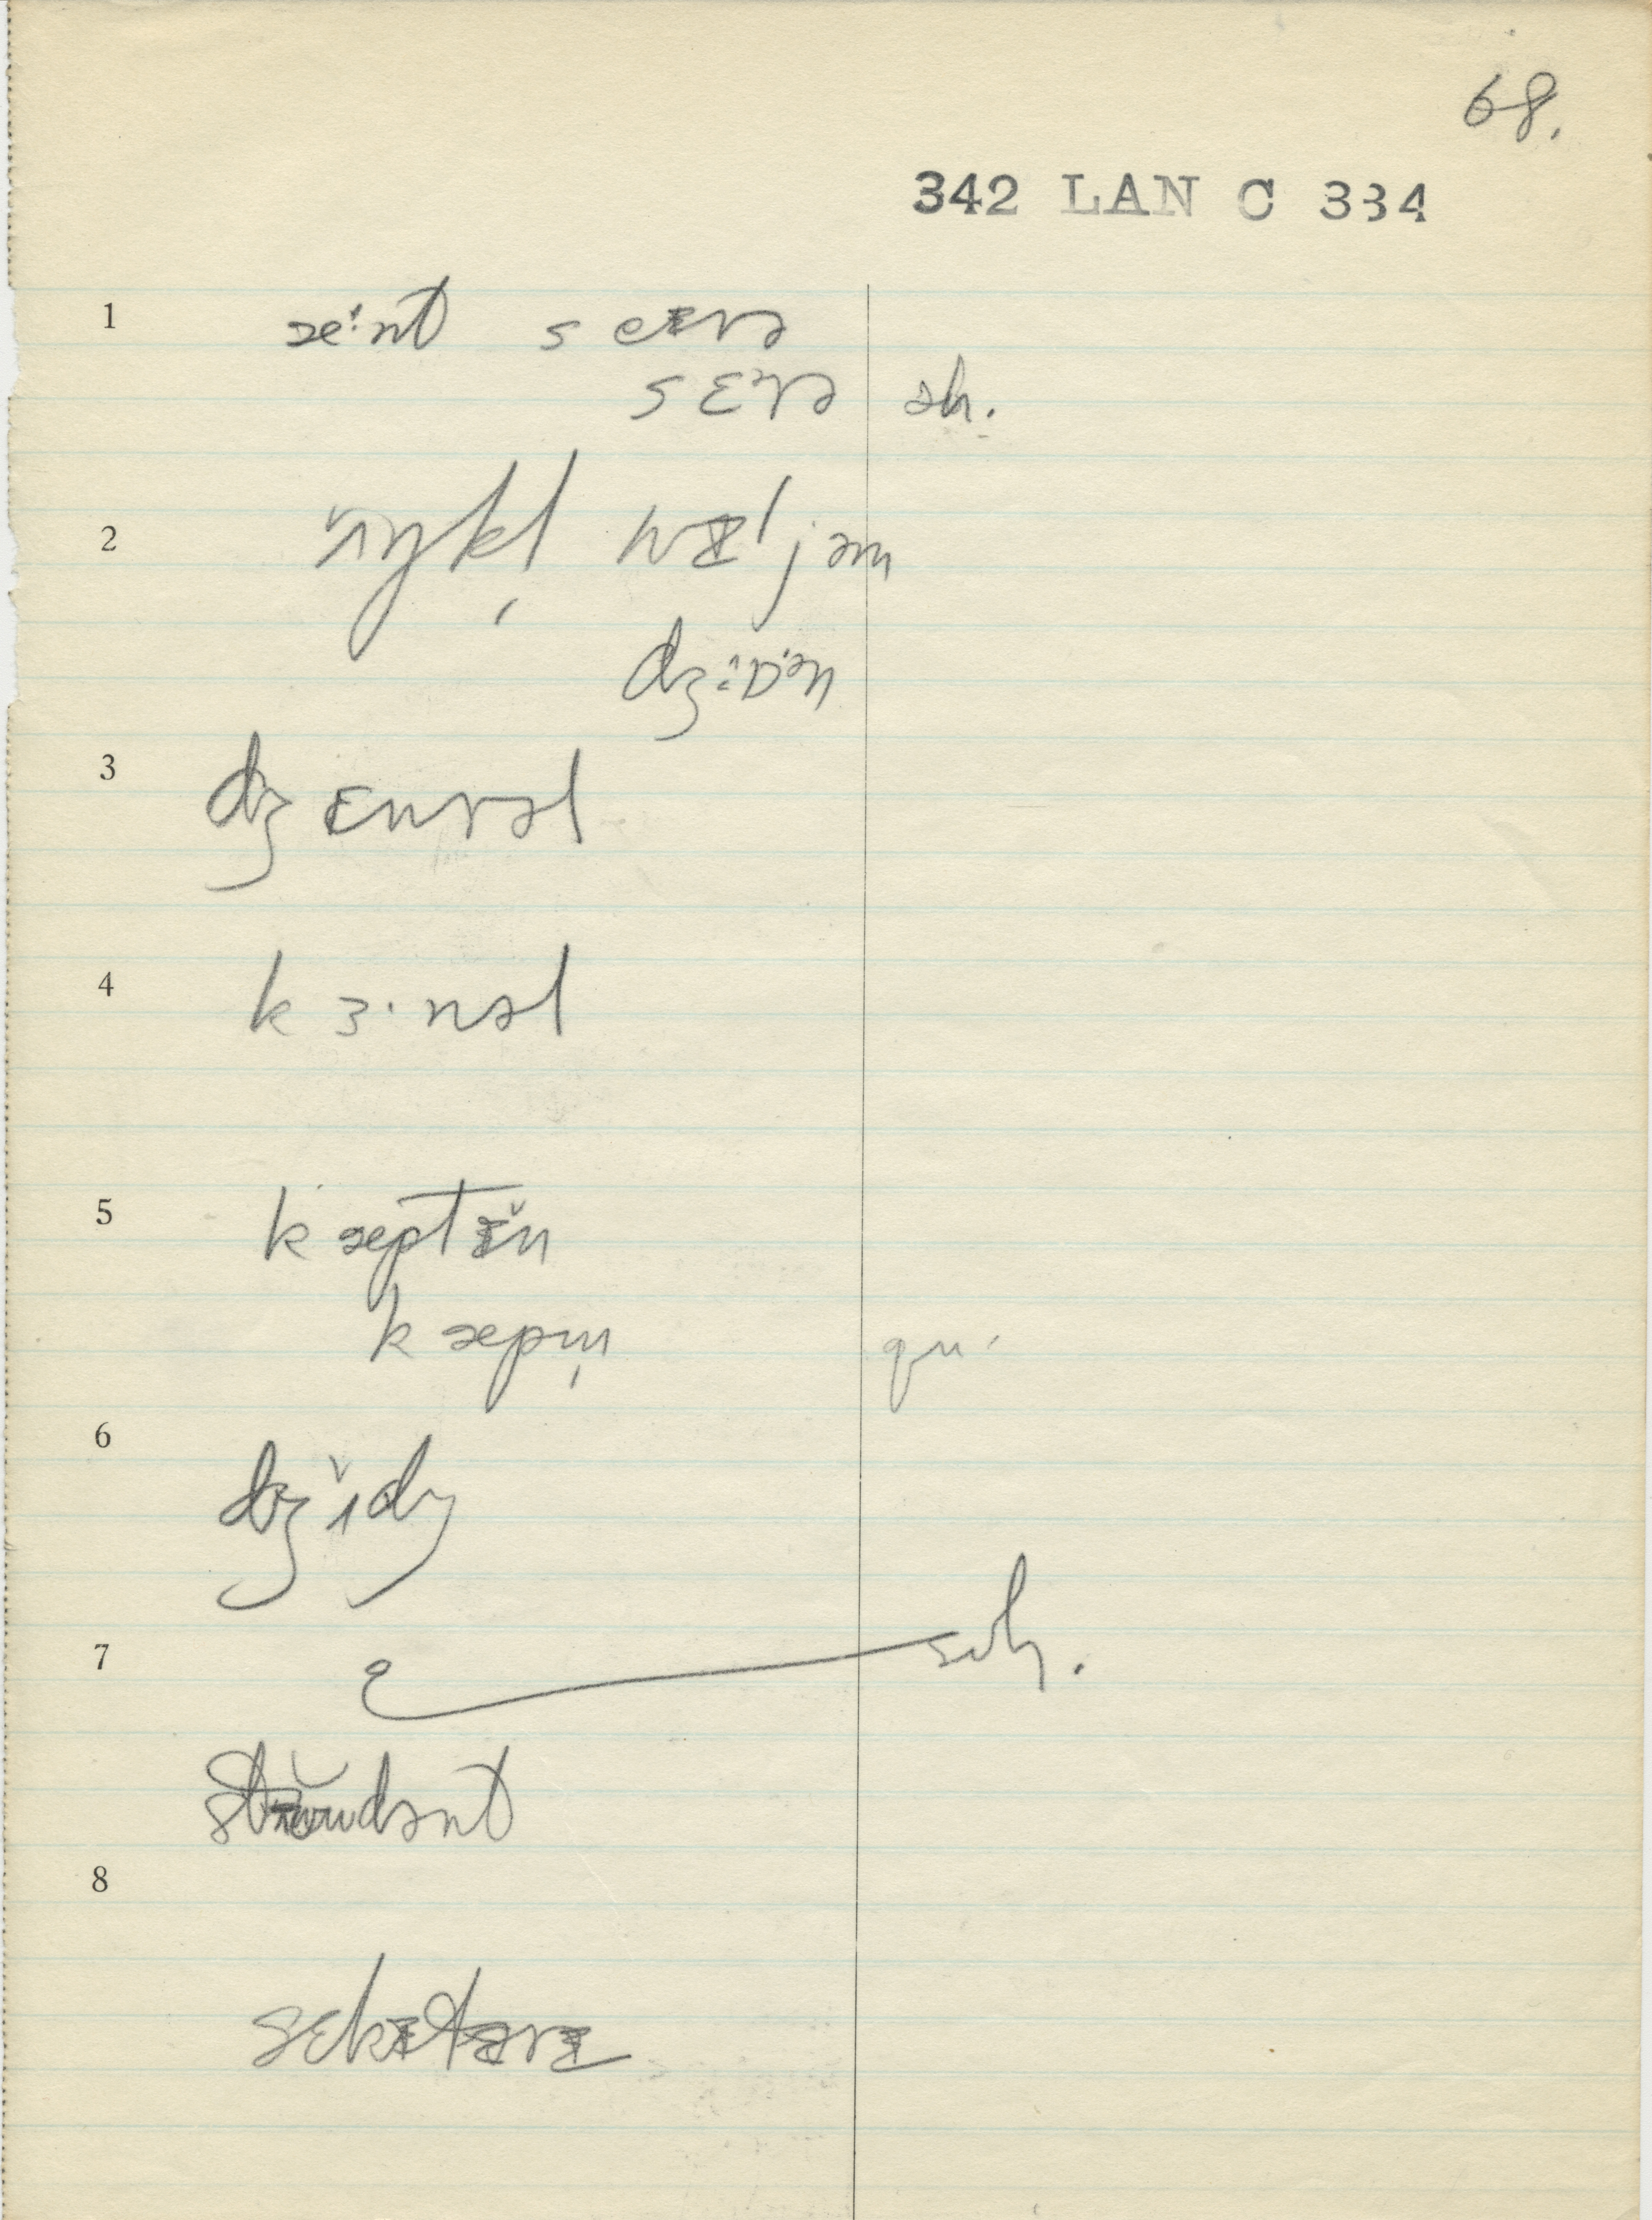 68.
342 LAN C 334
1 æˑnt sɛərə
sɛᵊrə sh.
2 ʌŋkl̩ wɪljəm
dʒɒˑən
3 dʒɛnrəl
4 kɜˑnəl
5 kæptɪ̆n
kæpm̩ qu.
6 dʒʌ̆dʒ
7 sih.
stɪŭdənt
8
sɛkɪtərɪ